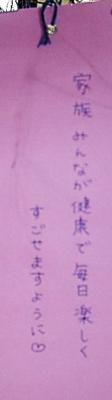 家族 みんなが健康で毎日楽しく
すごせますように♡